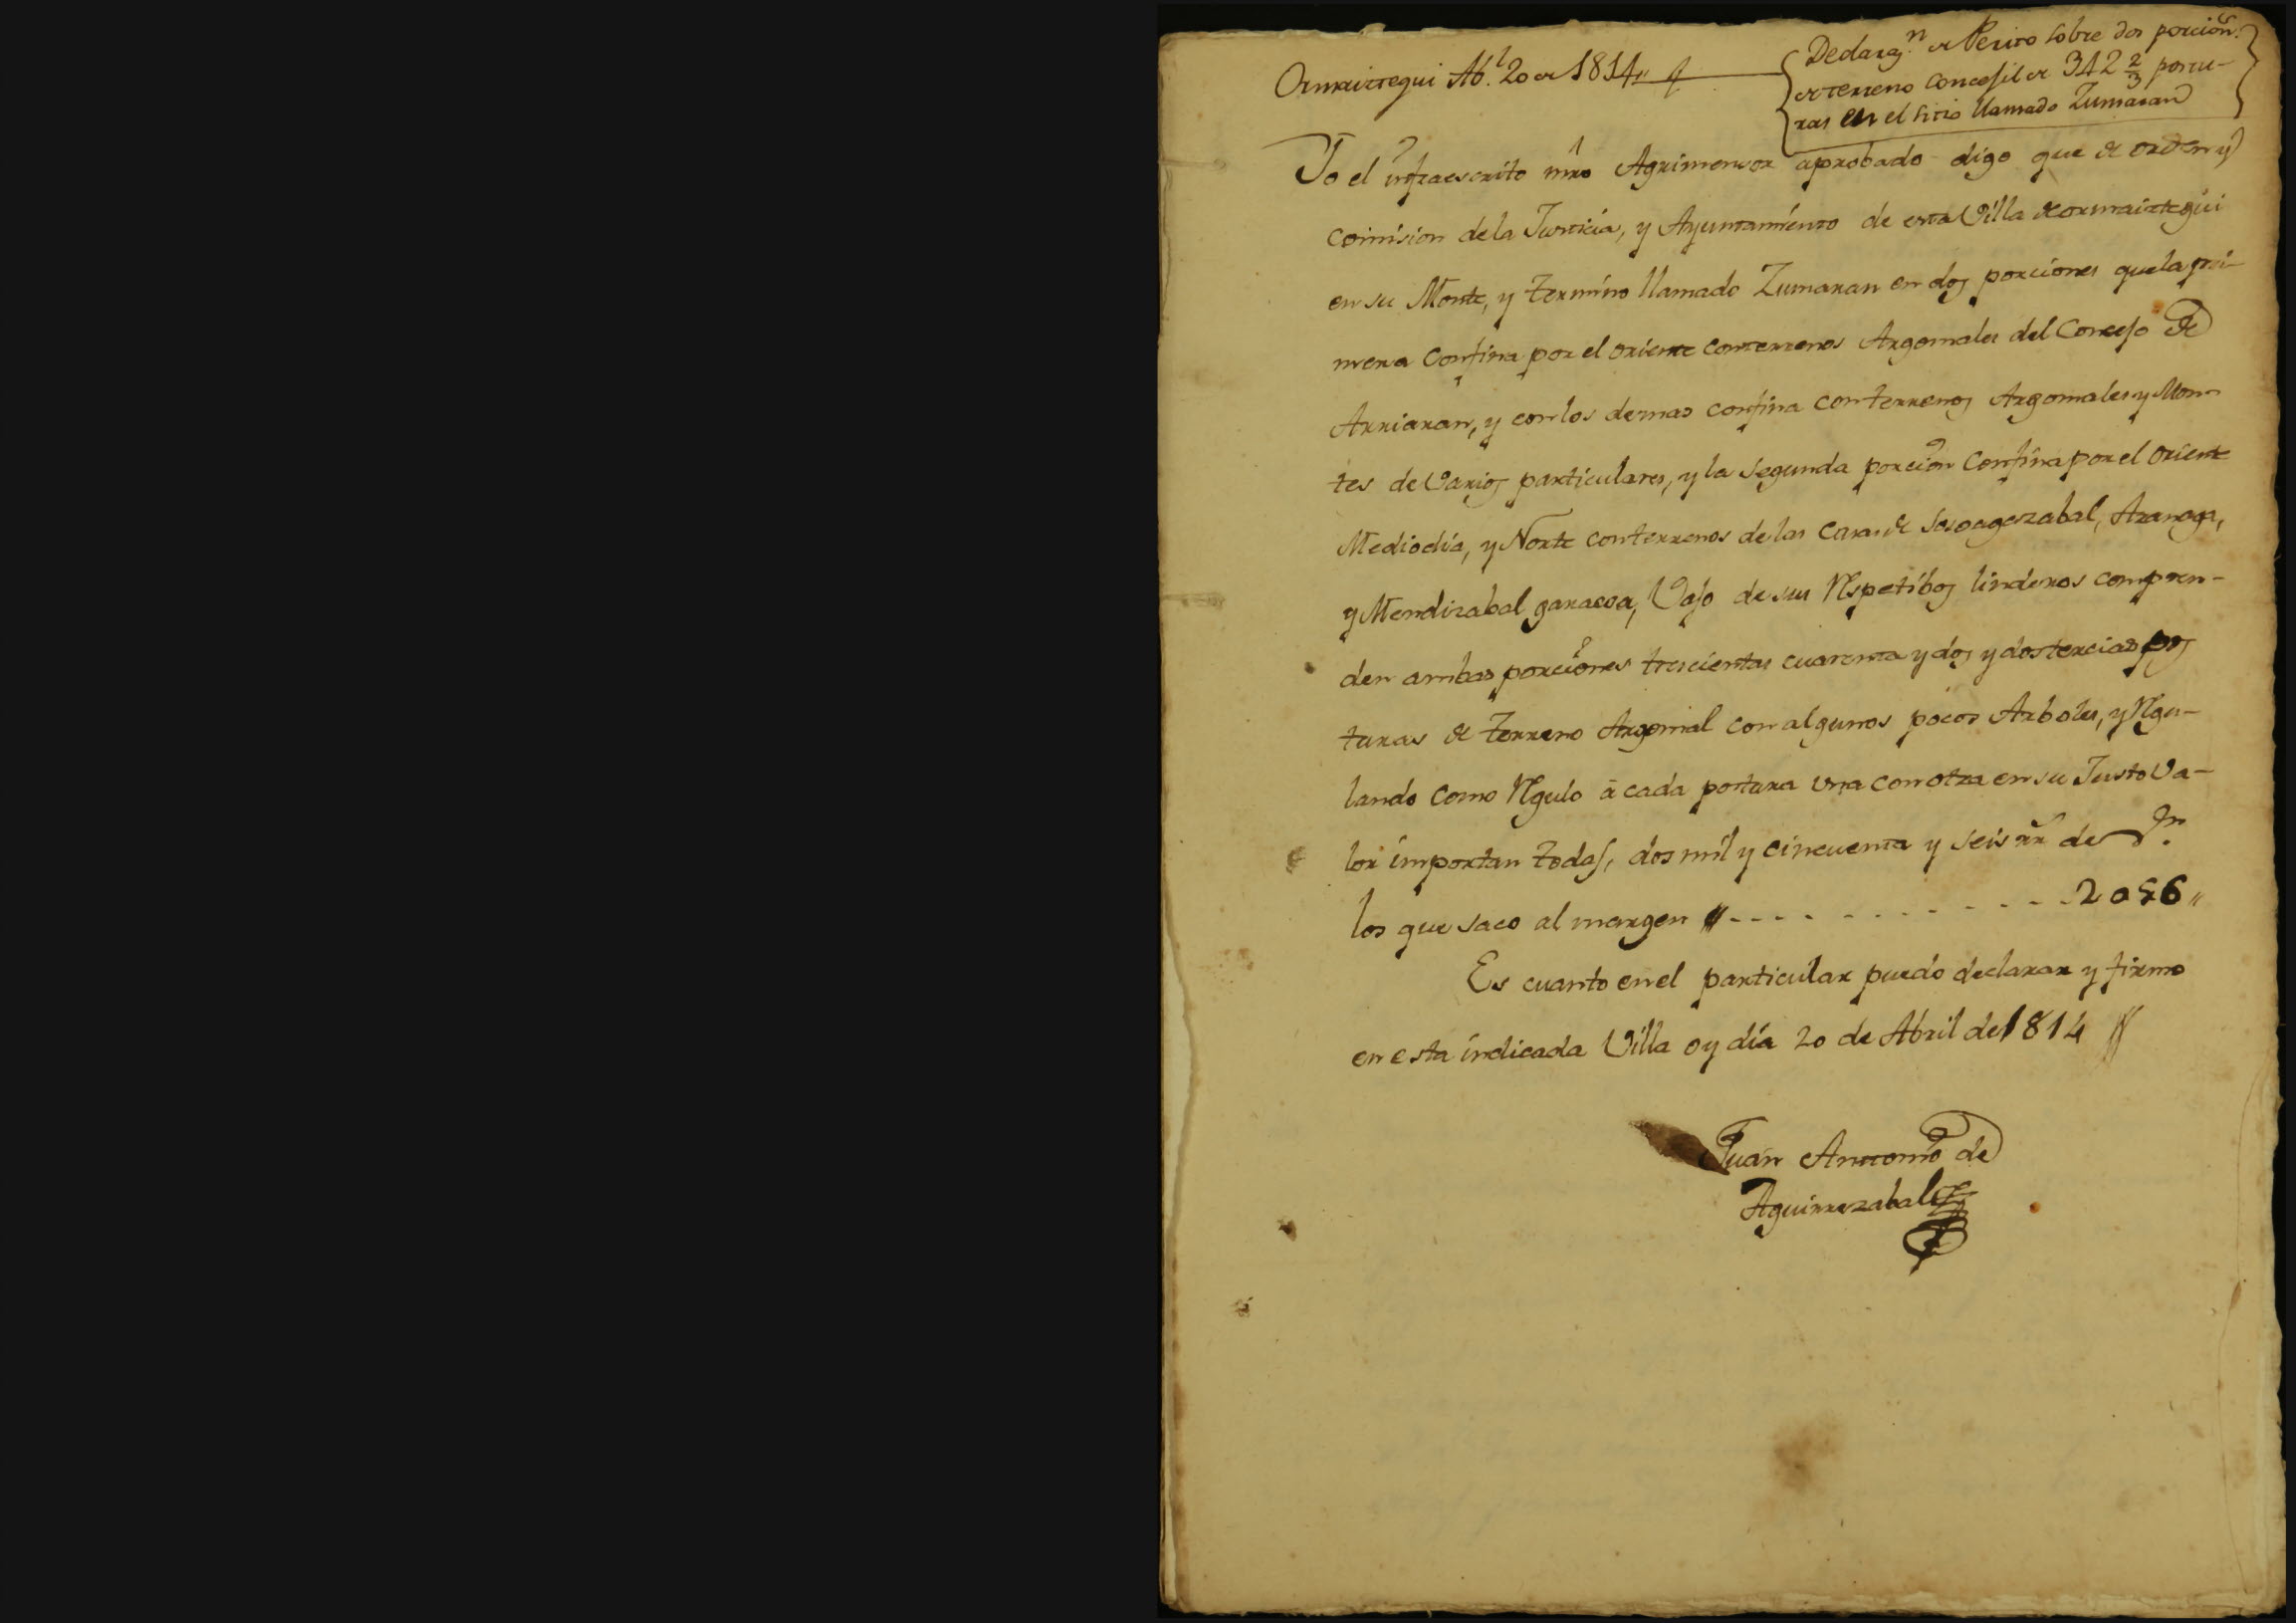 Ormaiztegui Ab.l 20 de 1814,,
Declaraz.n de Perito sobre dos porcion.s
de terreno concejil de 342 2/3 postu-
ras en el sitio llamado Zumaran
Yo el infraescrito mro Agrimensor aprobado digo que de orden y
comision de la Justicia, y Ayuntamiento de esta Villa de ormaiztegui
en su Monte, y termino llamado Zumaran en dos porciones que la pri-
mera Confina por el oriente con terrenos Argomales del Concejo de
Arriaran, y con los demas confina con terrenos Argomales y Mon-
tes de Varios particulares, y la segunda porcion Confina por el oriente
Mediodia, y Norte con terrenos de las Casas de Sasoagazabal, Aranoga,
y Mendizabal garacoa, Vajo de sus Rspetibos linderos compren-
den ambas porciones trescientas cuarenta y dos y dos tercias pos
turas de terreno Argomal con algunos pocos Arboles, y Rgu-
lando como Rgulo à cada postura una con otra en su Justo Va-
lor importan todas, dos mil y cincuenta y seis rr de Vn.
los que saco al margen 2056,,
Es cuanto en el particular puedo declarar y firmo
en esta indicada Villa oy dia 20 de Abril de 1814
Juan Antonio de
Aguirrezabal